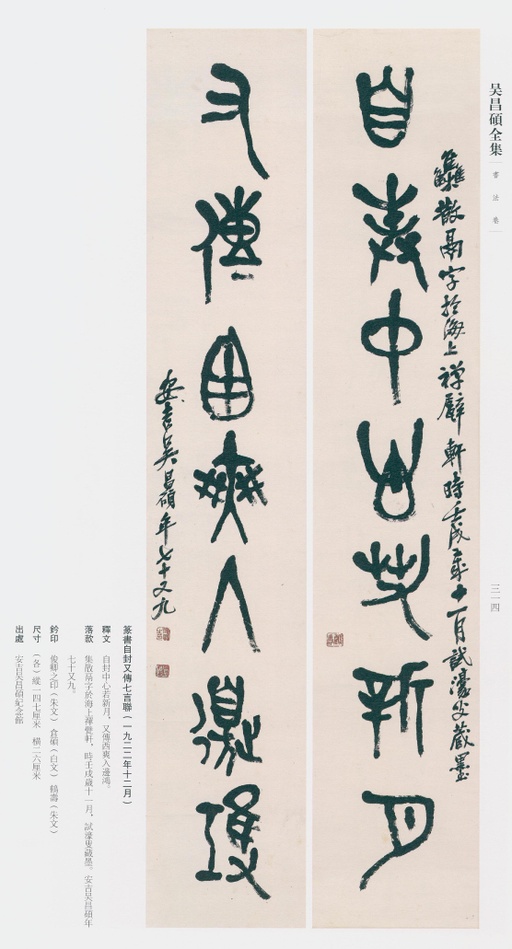 吴昌碩全集
書法卷
三一四
集散鬲字於海上禪甓軒時壬戌歲十一月試濠叟藏墨
安吉吴昌碩年七十又九
篆書自封又傳七言聯（一九二二年十二月）
釋文　自封中心若新月，又傳西爽入邊鴻。
落款　集散鬲字於海上禪甓軒，時壬戌歲十一月，試濠叟藏墨。安吉吴昌碩年
七十又九。
鈐印　俊卿之印（朱文）倉碩（白文）鶴壽（朱文）
尺寸　（各）縱一四七厘米　橫二六厘米
出處　安吉吴昌碩紀念館